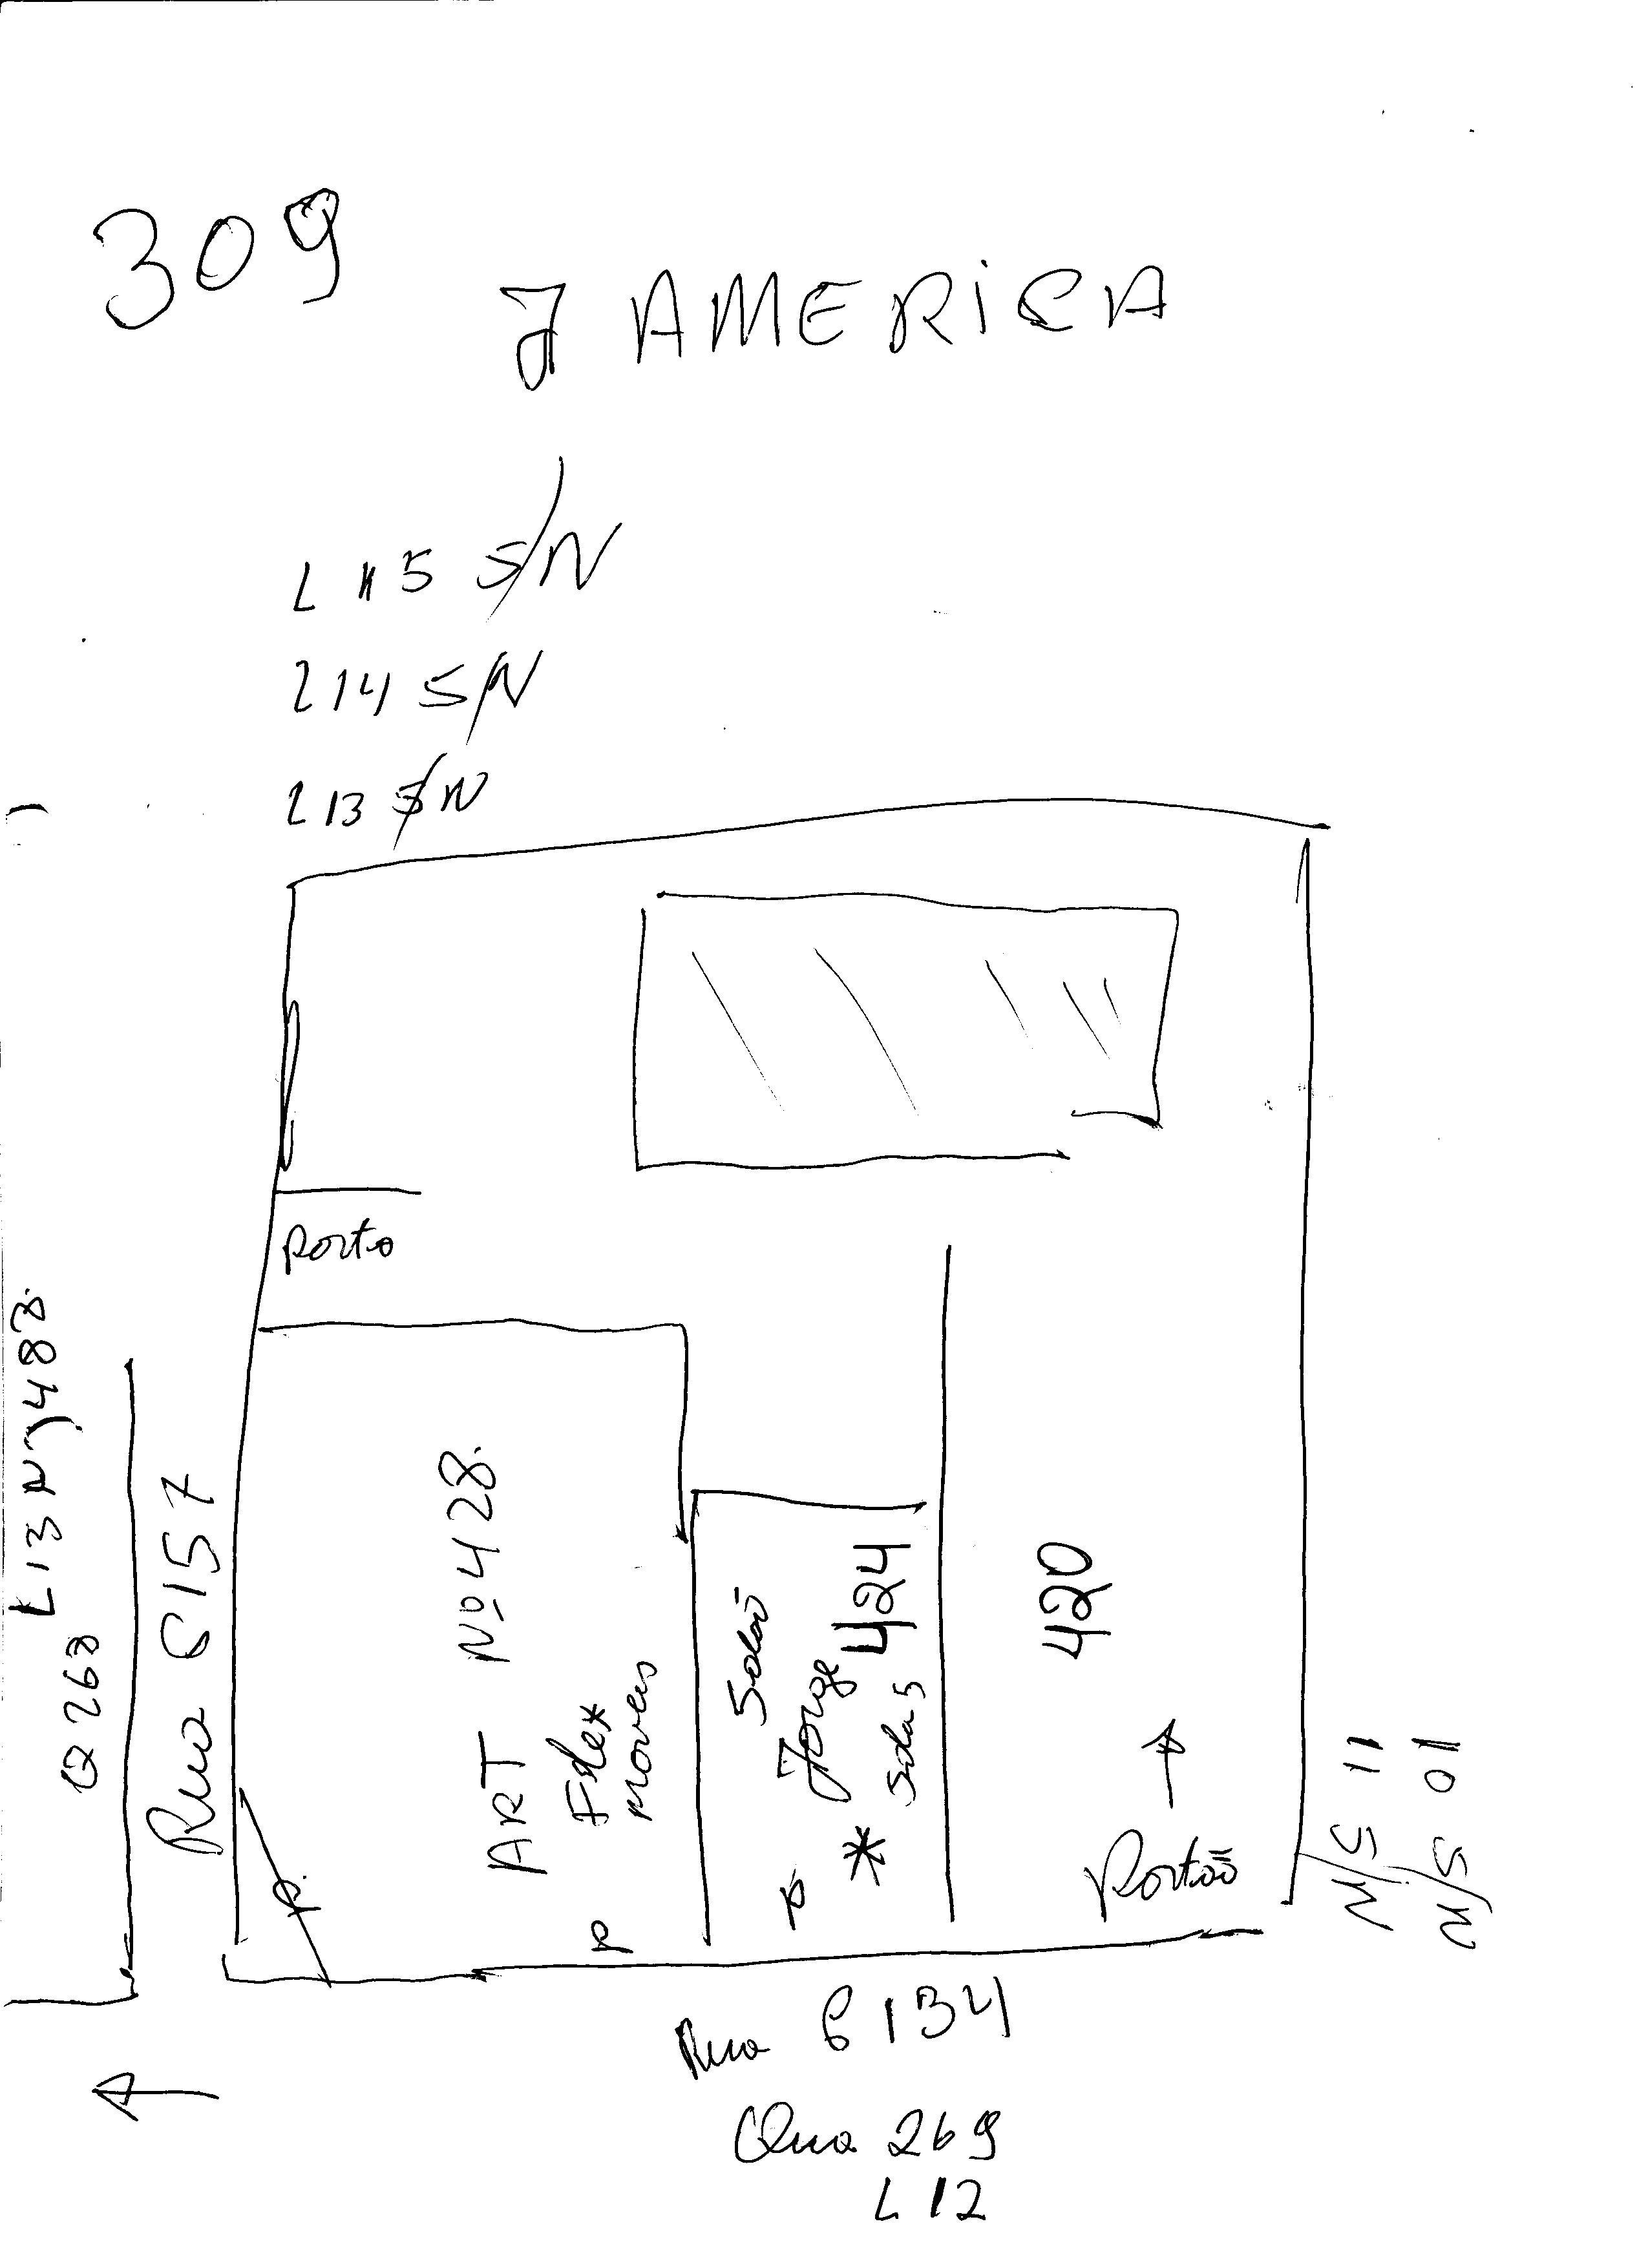 309
J AMERICA
L 15 S/N
L 14 S/N
L 13 S/N
Porto
L 13 Nº 488
Q 268
Rua C 157
ART Nº 428
Flex
moveis
P
P
Salão
Jorge 424
* Sala 5
P
420
Portão
S/N 11
S/N 01
Rua C 134
Qua 269
L 12